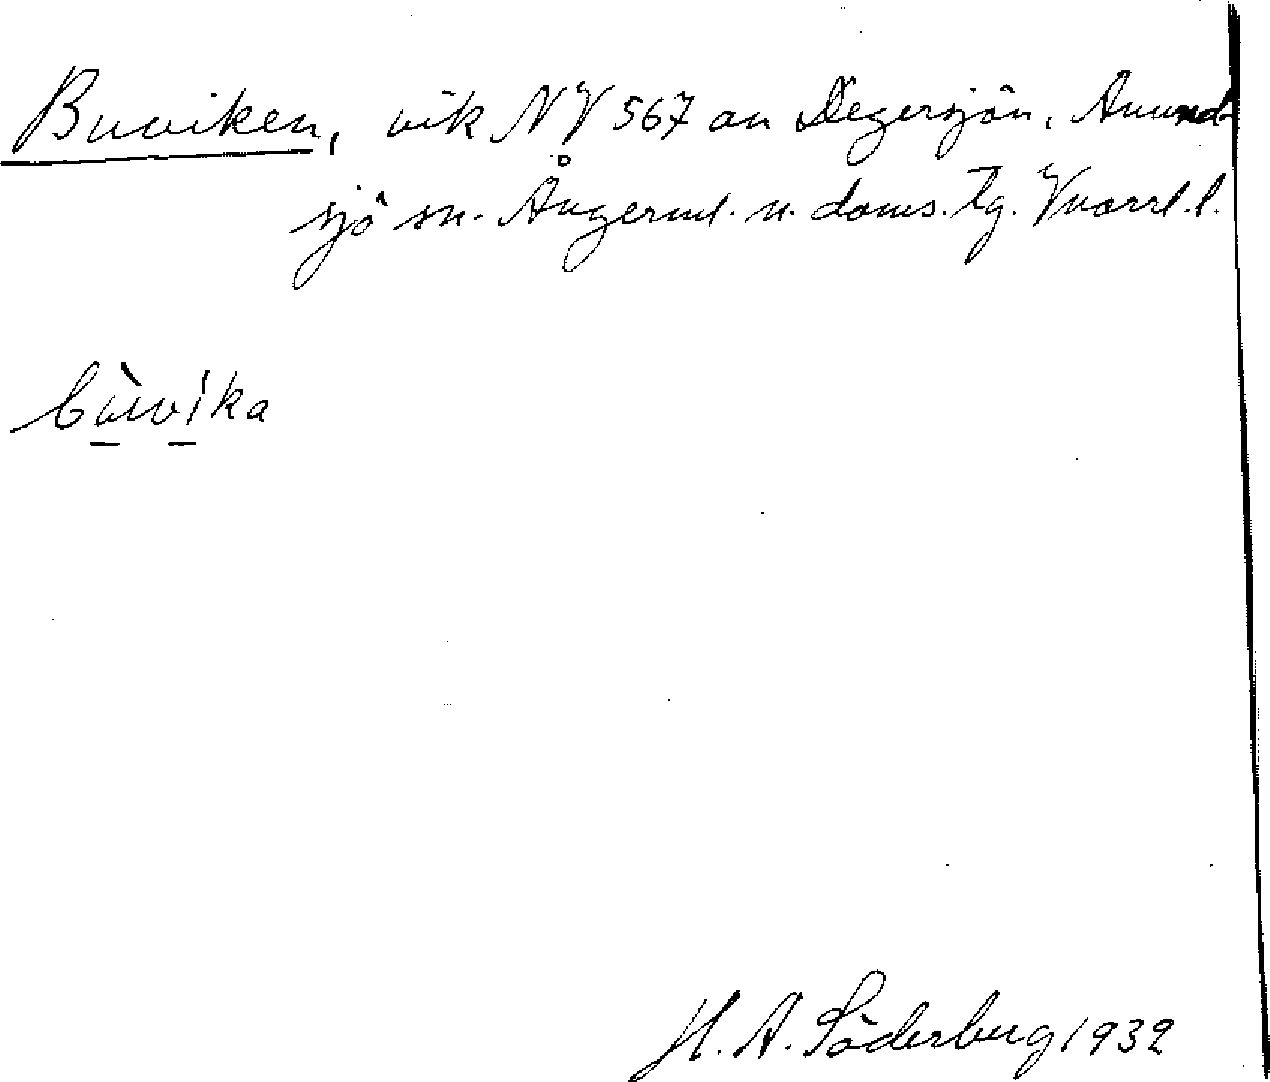 Buviken, vik NV 567 av Degersjön, Anund-
sjö sn. Ångerml. n. doms. tg. Vnorrl. l.
bùvika
H. A. Söderberg 1932